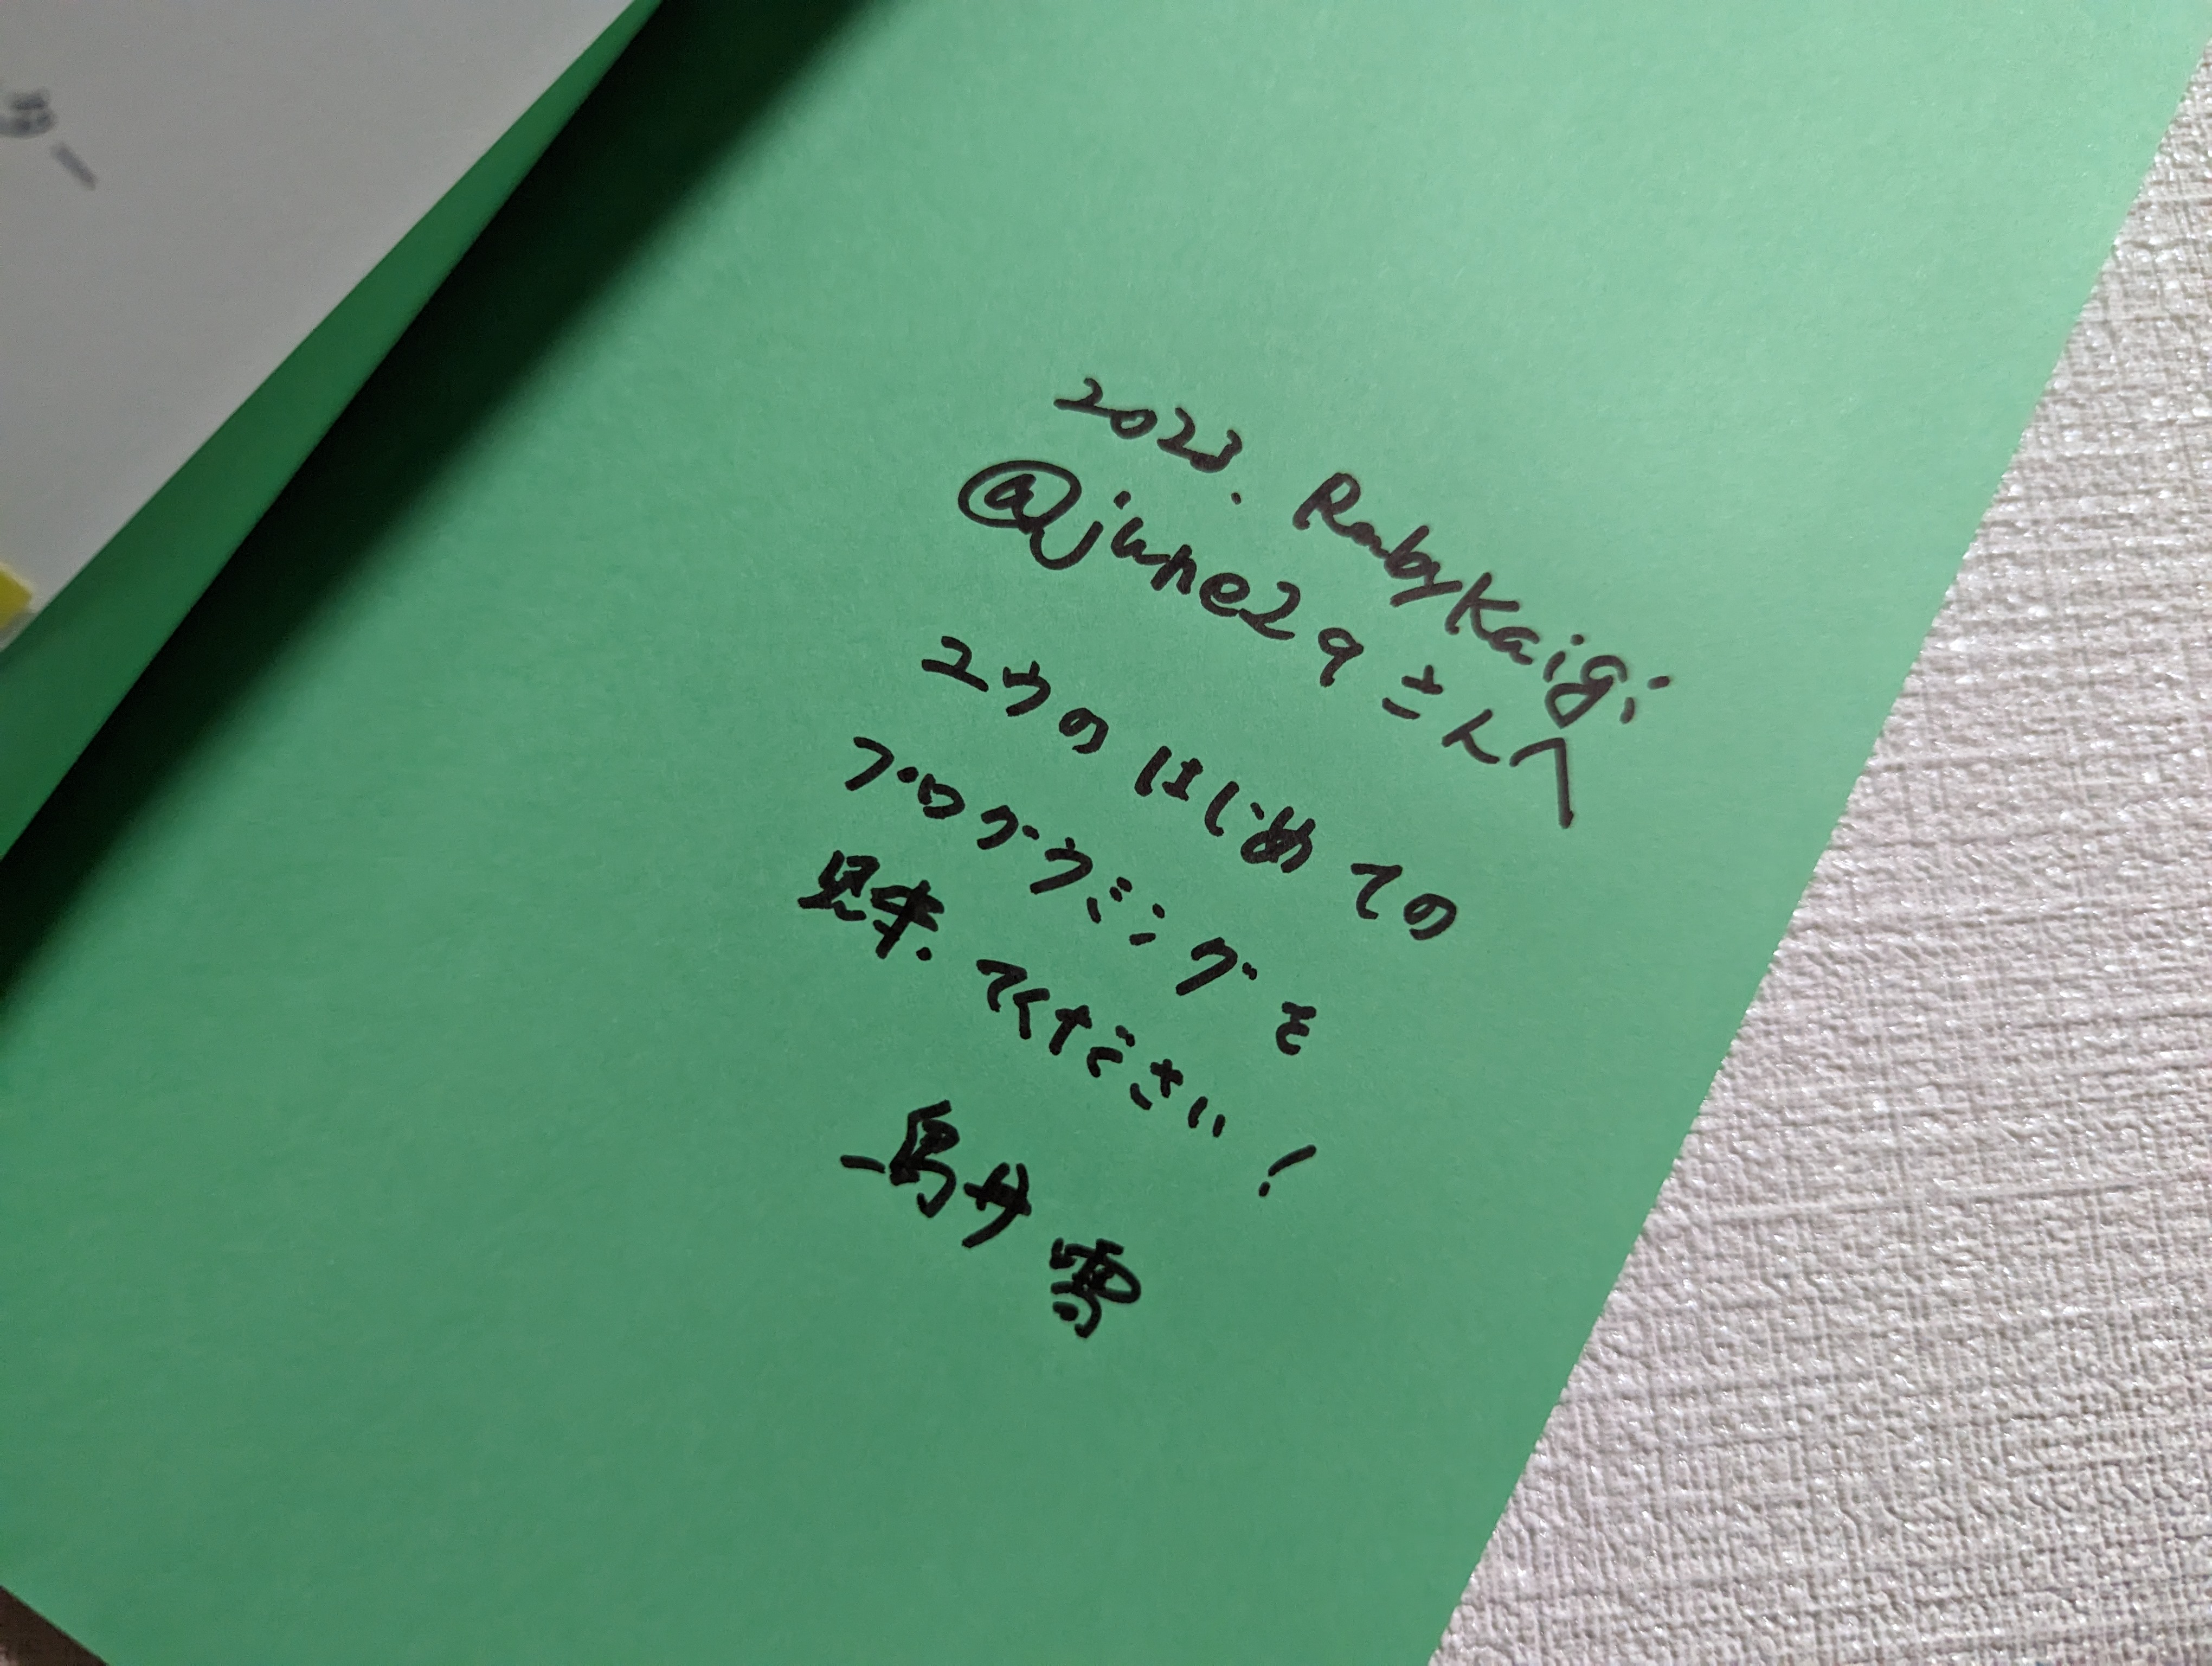 2023. RubyKaigi
@june29 さんへ
ユウの はじめての
プログラミングを
見守ってください!
鳥井 雪